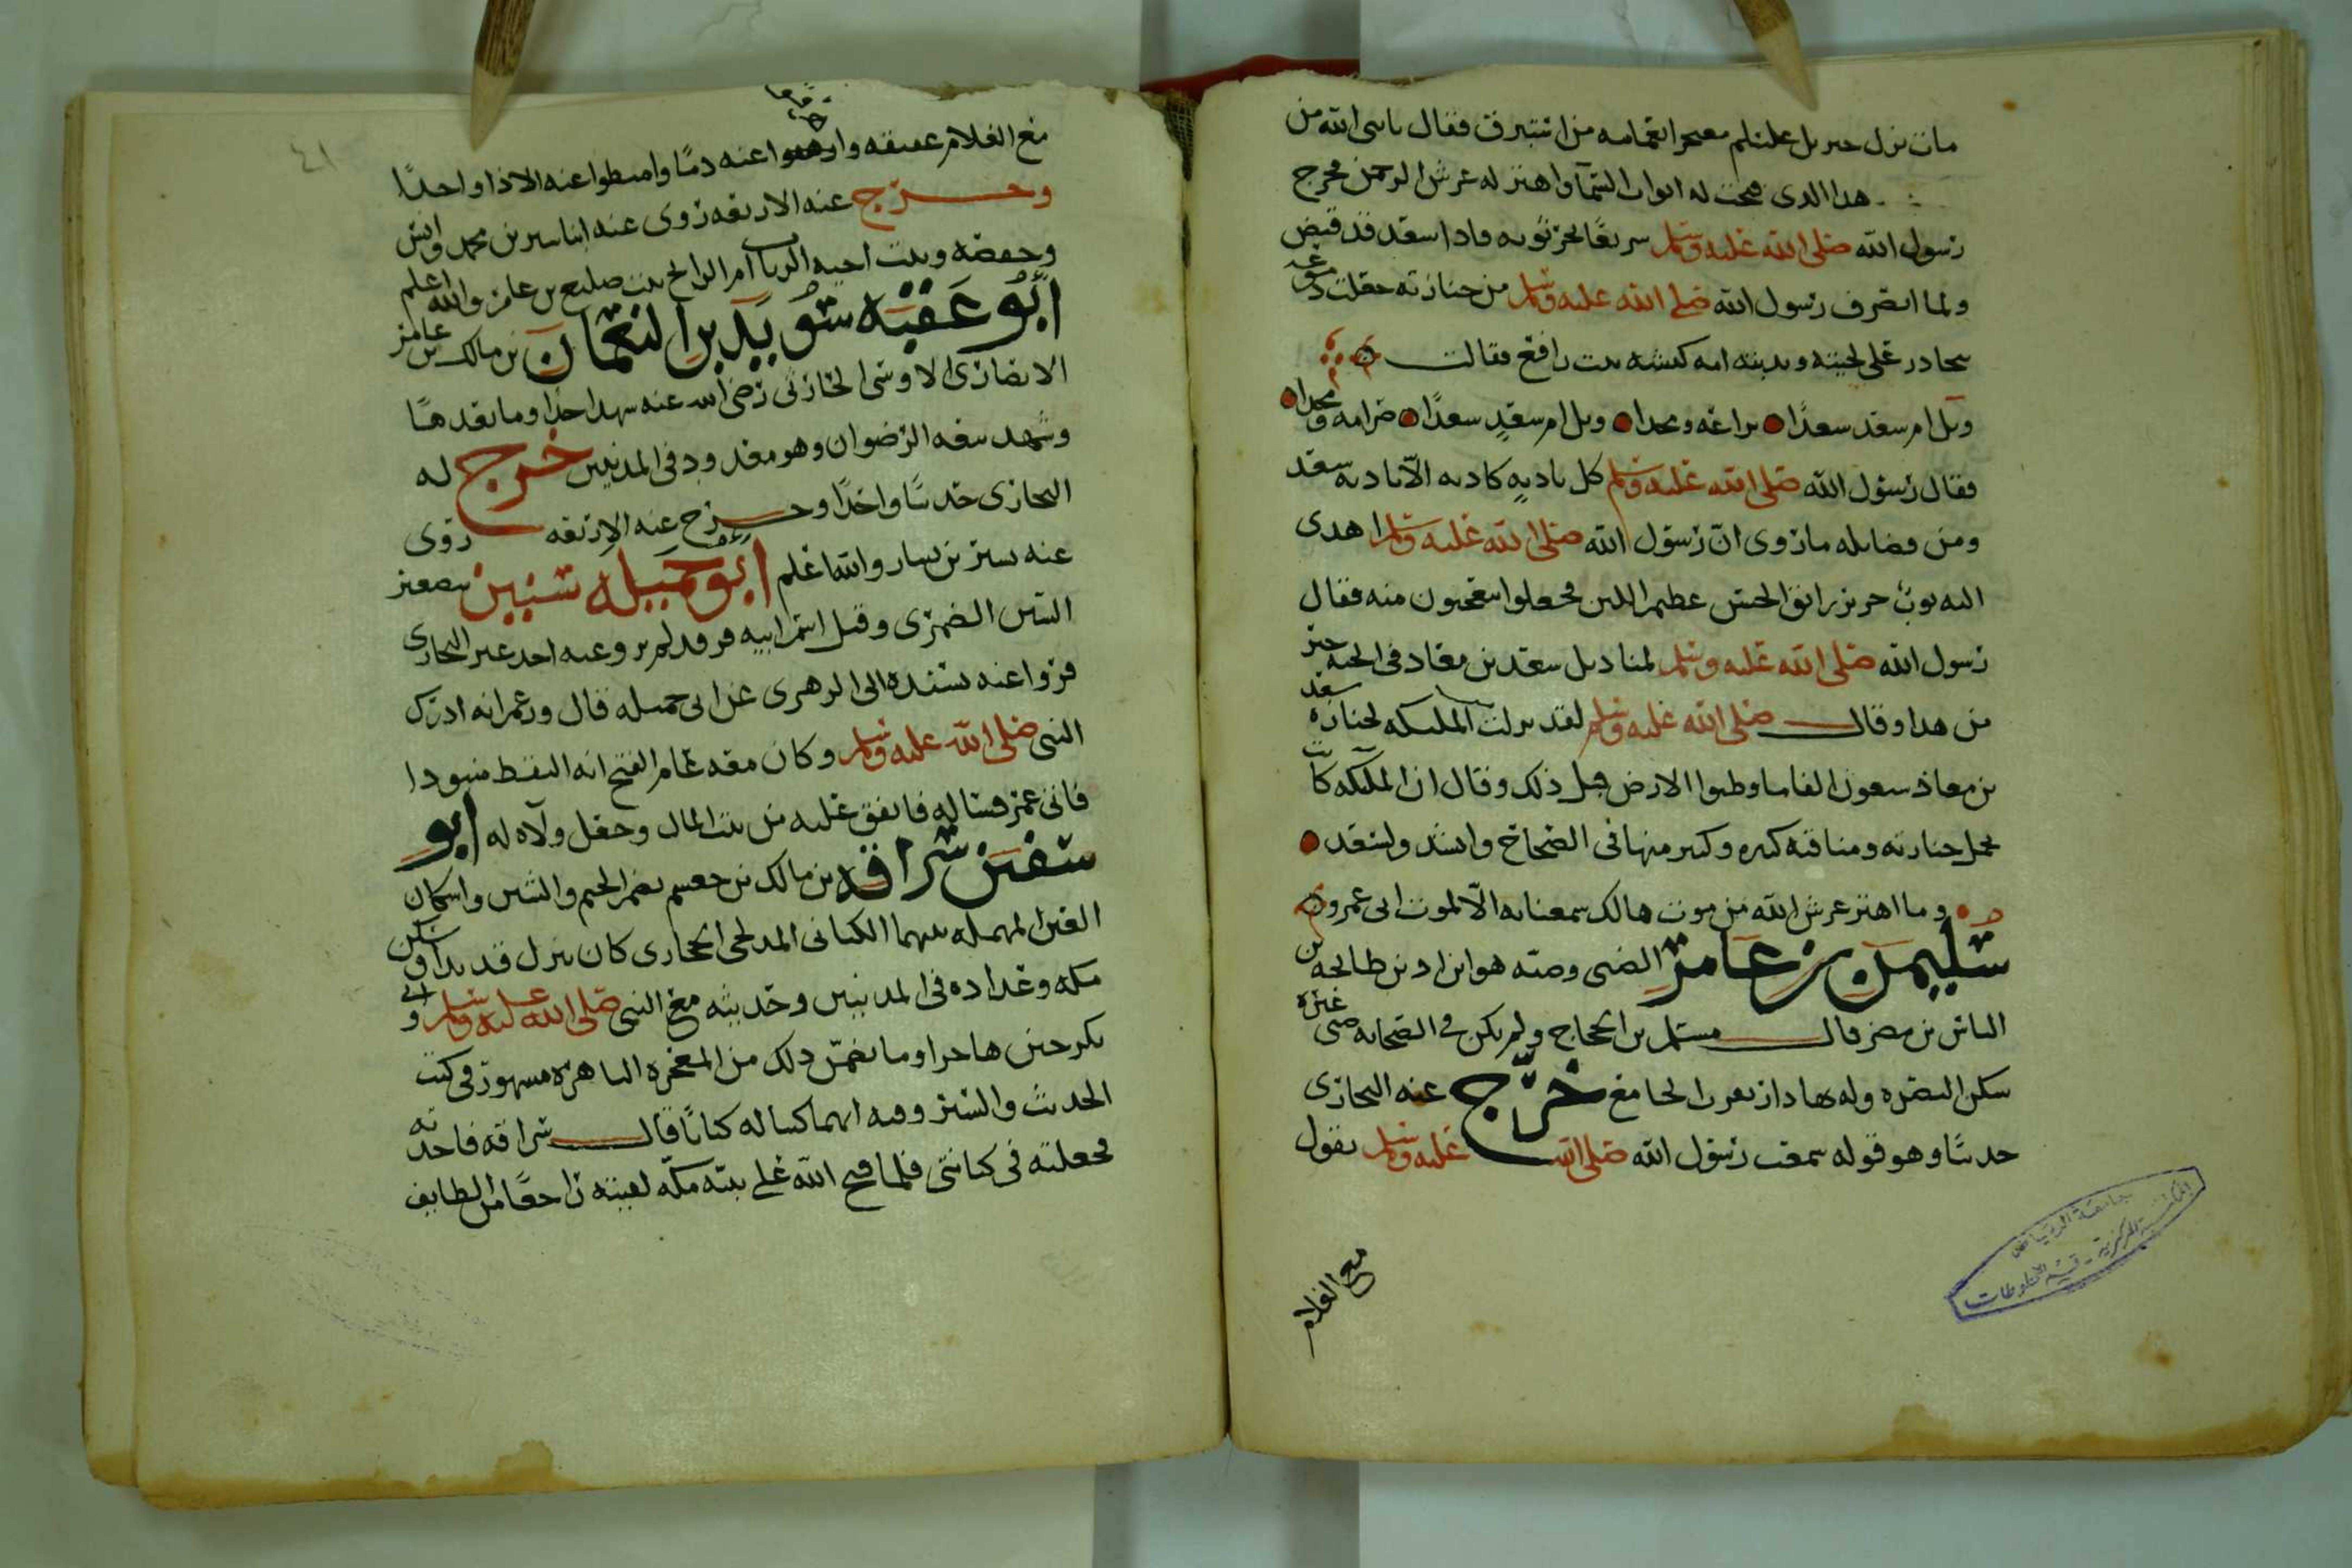 مات نزل جبريل عليلم معتجرا بعمامه من استبرق فقال يا نبي الله من
هذا الذى فتحت له ابواب السمآ واهتز له عرش الرحمن فخرج
رسول الله صلى الله عليه وسلم سريعًا يجر ثوبه فاذا سعد قد قبض
ولما انصرف رسول الله صلى الله عليه وسلم من جنازته جعلت دموعه
تحادر على لحيته وندبته امه كبشه بنت رافع فقالت
ويل ام سعد سعدًا براعه ومجدا ويل ام سعدٍ سعدًا صرامه ومجدا
فقال رسول الله صلى الله عليه وسلم كل نادبهٍ كاذبه الّا نادبه سعد
ومن فضايله ما روى انّ رسول الله صلى الله عليه وسلم اهدى
اليه ثوبُ حرير رايق الحسن عظيم اللين فجعلوا يتعجبون منه فقال
رسول الله صلى الله عليه وسلم لمناديل سعد بن معاذ فى الجنه خير
من هذا وقال صلى الله عليه وسلم لقد نزلت الملىىكه لجنازه سعد
بن معاذ سبعون الفا ما وطىوا الارض قبل ذلك وقال ان الملىكه كانت
تحمل جنازته ومناقبه كثيره وكثير منها فى الصحاح وانشد ولسعد
وما اهتز عرش الله من موت هالك سمعنا به الّا لموت ابى عمرو
سليمن بن عامر الضبى وضبه هو ابن اد بن طابخه بن
الياس بن مضر قال مسلم بن الحجاج ولم يكن فى الصحابه ضبى غيره
سكن البصره وله بها دار بقرب الجامع خرّج عنه البخارى
حديثًا وهو قوله سمعت رسول الله صلى الله عليه وسلم يقول
مع الغلام
جامعة الرياض
المكتبة المركزية - قسم المخطوطات
٤١
مع الغلام عقيقه واهرقوا عنه دمًا واميطوا عنه الاذا واحدًا
وخرّج عنه الاربعه روى عنه ابنا سيرين محمد وانس
وحفصه وبنت اخيه الرباب ام الرايح بنت صليع بن عامر والله اعلم
ابو عقبه سويد بن النعمان بن مالك بن عامر
الانصارى الاوسى الحارثى رضى الله عنه شهد احدًا وما بعدها
وشهد بيعه الرضوان وهو معدود فى المدنيين خرج له
البخارى حديثًا واحدًا وخرج عنه الاربعه روى
عنه بشير بن يسار والله اعلم ابو جميله سنين بضم
السين الضمرى وقيل اسم ابيه فرقد لم يرو عنه احد غير البخارى
فروا عنه بسنده الى الزهرى عن ابى جميله قال وزعم انه ادرك
النبى صلى الله عليه وسلم وكان معه عام الفتح انه التقط منبوذا
فاتى عمر فساله فانفق عليه من بيت المال وجعل ولآه له ابو
سفين سراقه بن مالك بن جعشم بضم الجيم والشين واسكان
العين المهمله بينهما الكنانى المدلجى الحجازى كان ينزل قديدا وسكن
مكه وعداده فى المدنيين وحديثه مع النبى صلى الله عليه وسلم وابى
بكر حين هاجرا وما تضمّن ذلك من المعجزه الباهره مشهور فى كتب
الحديث والسير وفيه انهما كتبا له كتابًا قال سراقه فاخذته
فجعلته فى كنانتى فلما فتح الله على نبيّه مكّه لقيته راجعًا من الطايف